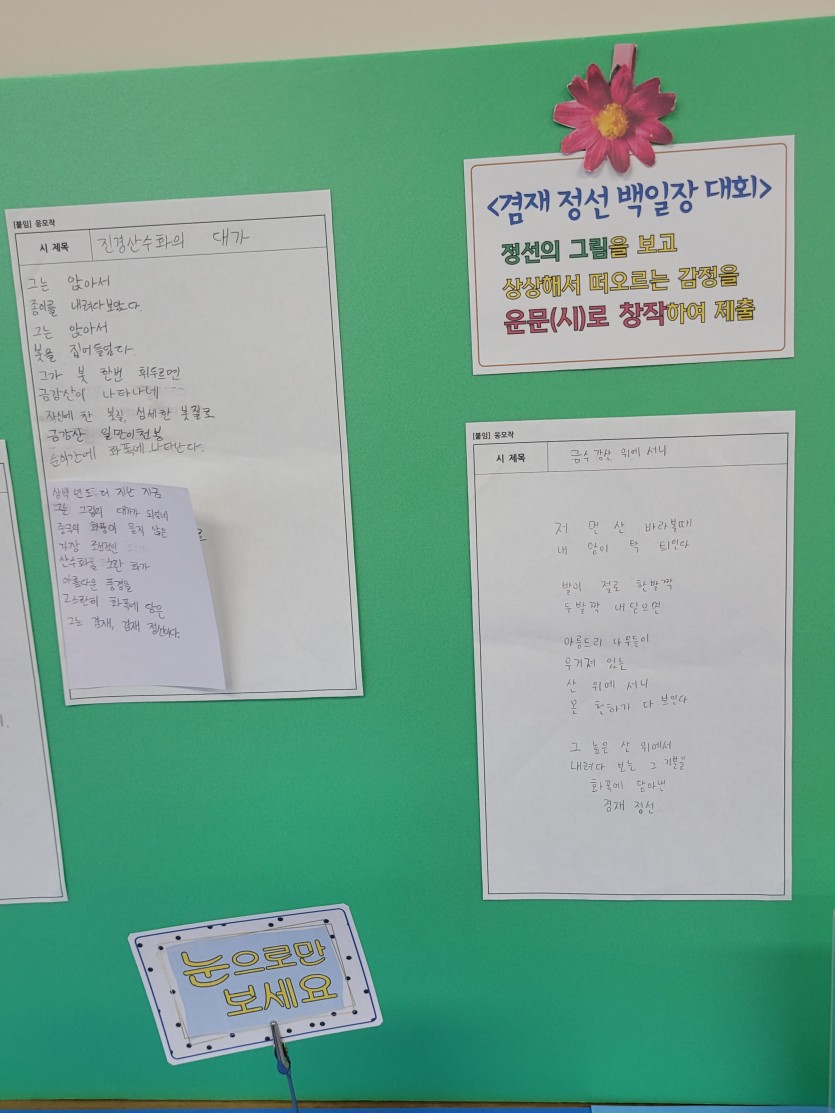 <겸재 정선 백일장 대회>
정선의 그림을 보고
상상해서 떠오르는 감정을
운문(시)로 창작하여 제출
[붙임] 응모작
시 제목 진경산수화의 대가
그는 앉아서
종이를 내려다보았다.
그는 앉아서
붓을 집어들었다
그가 붓 한번 휘두르면
금강산이 나타나네
한 붓길, 섬세한 붓질로
금강산 일만이천봉
순식간에 화폭에 나타난다.
삼백년도 더 지난 지금
그림의 대가가 되셨네
중국의 화풍이 묻지 않은
가장 조선적인
산수화를 그린 화가
아름다운 풍경을
고스란히 화폭에 담은
그는 겸재, 겸재 정선이다.
로
[붙임] 응모작
시 제목 금수강산 위에 서니
저 먼 산 바라볼때
내 맘이 탁 트인다
발이 절로 한발짝
두발짝 내딛으면
아름드리 나무들이
우거져 있는
산 위에 서니
온 천하가 다 보인다
그 높은 산 위에서
내려다 보는 그 기쁨을
화폭에 담아낸
겸재 정선
눈으로만
보세요